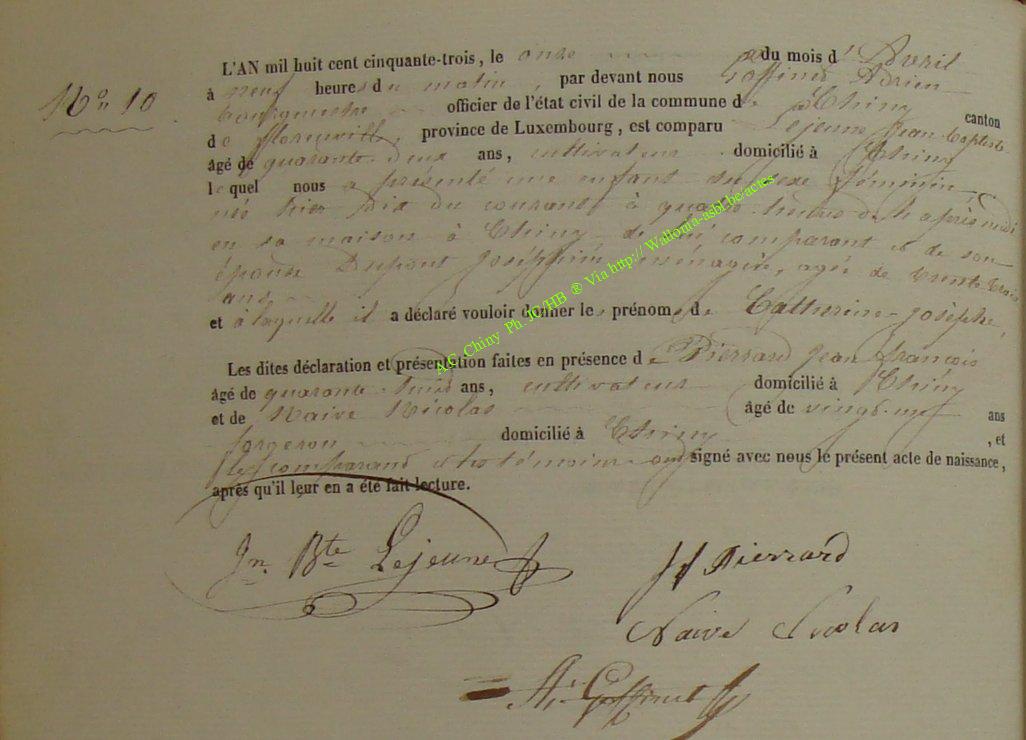 L'AN mil huit cent cinquante-trois, le onze du mois d' Avril
No 10
à neuf heures du matin, par devant nous Goffinet Adrien
bourgmestre officier de l'état civil de la commune de Chiny canton
de florenville, province de Luxembourg, est comparu Lejeune Jean-Baptiste
âgé de quarante deux ans, cultivateur domicilié à Chiny
lequel nous a présenté une enfant du sexe féminin
née hier dix du courant à quatre heures de l'après midi
en sa maison à Chiny de lui comparant et de son
épouse Dupont Joséphine ménagère, agée de trente trois
ans
et à laquelle il a déclaré vouloir donner les prénoms de Catherine-Josèphe,
Les dites déclaration et présentation faites en présence de Pierrard jean françois
âgé de quarante huit ans, cultivateur domicilié à Chiny
et de Naive Nicolas âgé de vingt-neuf ans
forgeron domicilié à Chiny, et
les comparant et témoins ont signé avec nous le présent acte de naissance,
après qu'il leur en a été fait lecture.
Jn Bte Lejeune
Jf Pierrard
Naive Nicolas
Ad. Goffinet
A.C. Chiny Ph. JC/HB ® Via http://Wallonia-asbl.be/actes